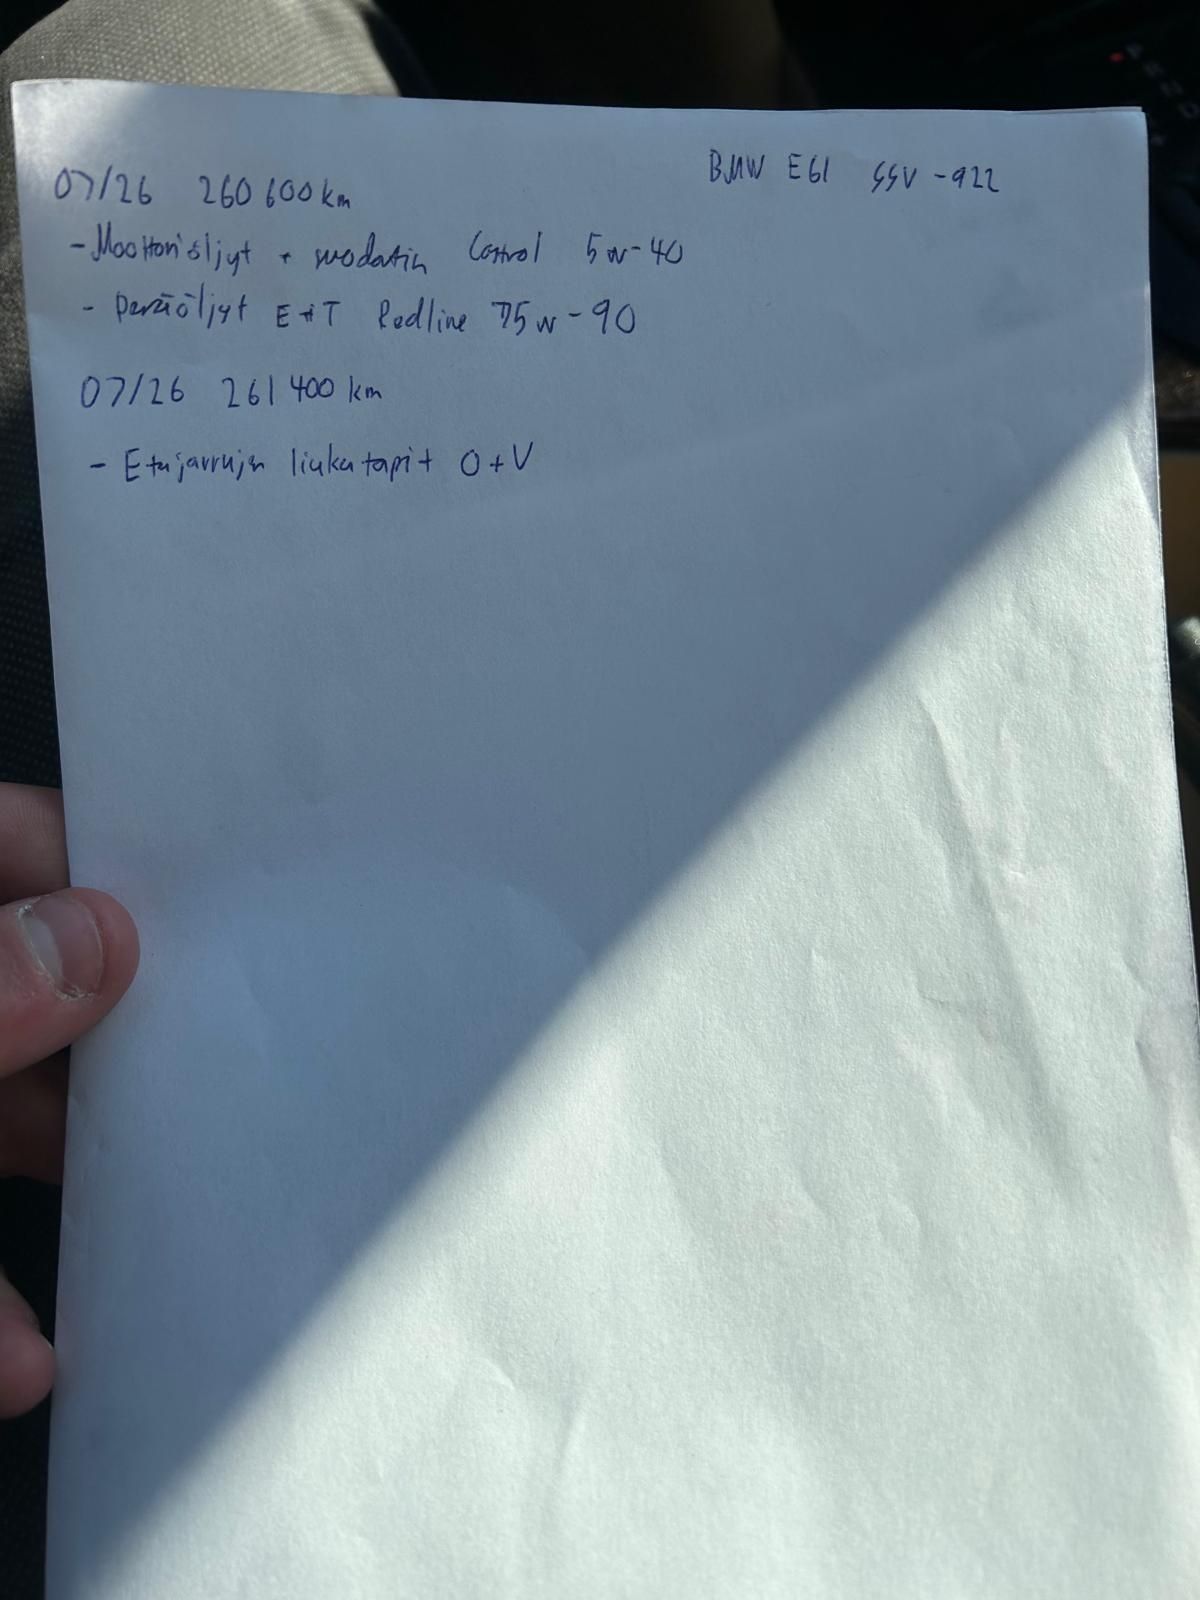 BMW E61 SSV-922
07/26 260 600 km
- Moottoriöljyt + suodatin Castrol 5w-40
- Peräöljyt E+T Redline 75w-90
07/26 261 400 km
- Etujarrujen liukutapit O+V